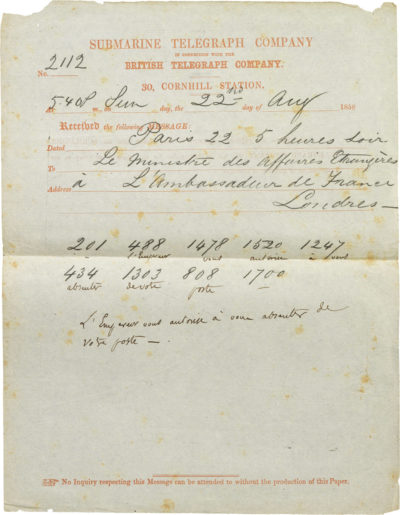 SUBMARINE TELEGRAPH COMPANY
IN CONNECTION WITH THE
BRITISH TELEGRAPH COMPANY.
No. 2112
30, CORNHILL STATION.
5.40 P m. Sun day, the 22nd day of Aug 185
Received the following MESSAGE:
Dated Paris 22 5 heures soir
Le Ministre des Affaires Etrangères
To
Address à L'Ambassadeur de France
Londres —
201 488 1478 1520 1247
L'Empereur vous autorise à vous
434 1303 808 1700
absenter de votre poste —
L'Empereur vous autorise à vous absenter de
votre poste —.
No Inquiry respecting this Message can be attended to without the production of this Paper.